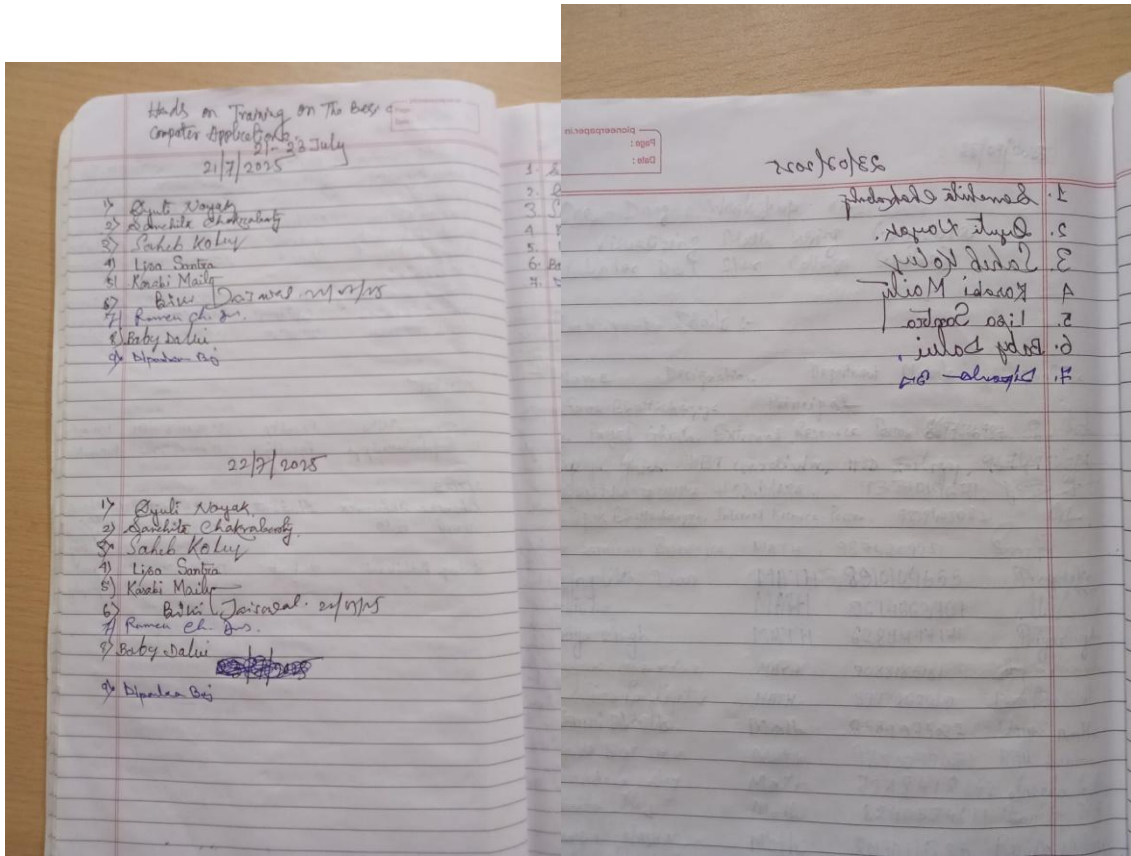 Hands on Training on The Basic
Computer Applications.
21-23 July
21/7/2025
1) Dyuti Nayak
2) Sanchita Chakraborty
3) Saheb Koley
4) Lisa Santra
5) Karabi Maity
6) Biki Jaiswal 21/7/25
7) Ramen Ch. Das
8) Baby Dalui
9) Dipankar Bej
22/7/2025
1) Dyuti Nayak
2) Sanchita Chakraborty
3) Saheb Koley
4) Lisa Santra
5) Karabi Maity
6) Biki Jaiswal. 22/7/25
7) Ramen Ch. Das.
8) Baby Dalui
9) Dipankar Bej
pioneerpaper.in
Page :
Date :
23/07/2025
1. Sanchita Chakraborty
2. Dyuti Nayak.
3. Saheb Koley
4 Karabi Maity
5. Lisa Santra
6. Baby Dalui.
7. Dipankar Bej